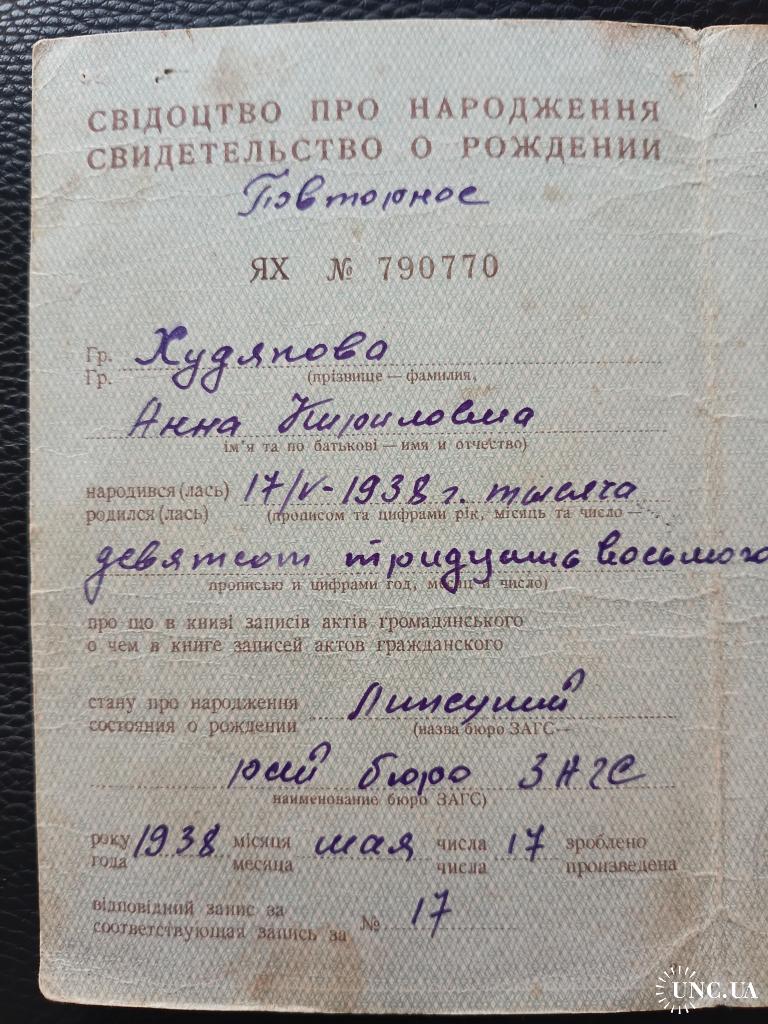 СВІДОЦТВО ПРО НАРОДЖЕННЯ
СВИДЕТЕЛЬСТВО О РОЖДЕНИИ
Повторное
ЯХ № 790770
Гр. Худякова
Гр. (прізвище — фамилия,
Анна Кириловна
ім'я та по батькові — имя и отчество)
народився (лась) 17/V-1938 г. тысяча
родился (лась) (прописом та цифрами рік, місяць та число —
девятсот тридцать восьмого
прописью и цифрами год, месяц и число)
про що в книзі записів актів громадянського
о чем в книге записей актов гражданского
стану про народження
состояния о рождении (назва бюро ЗАГС —
рай бюро ЗАГС
наименование бюро ЗАГС)
року 1938 місяця мая числа 17 зроблено
года месяца числа произведена
відповідний запис за
соответствующая запись за № 17
UNC.UA